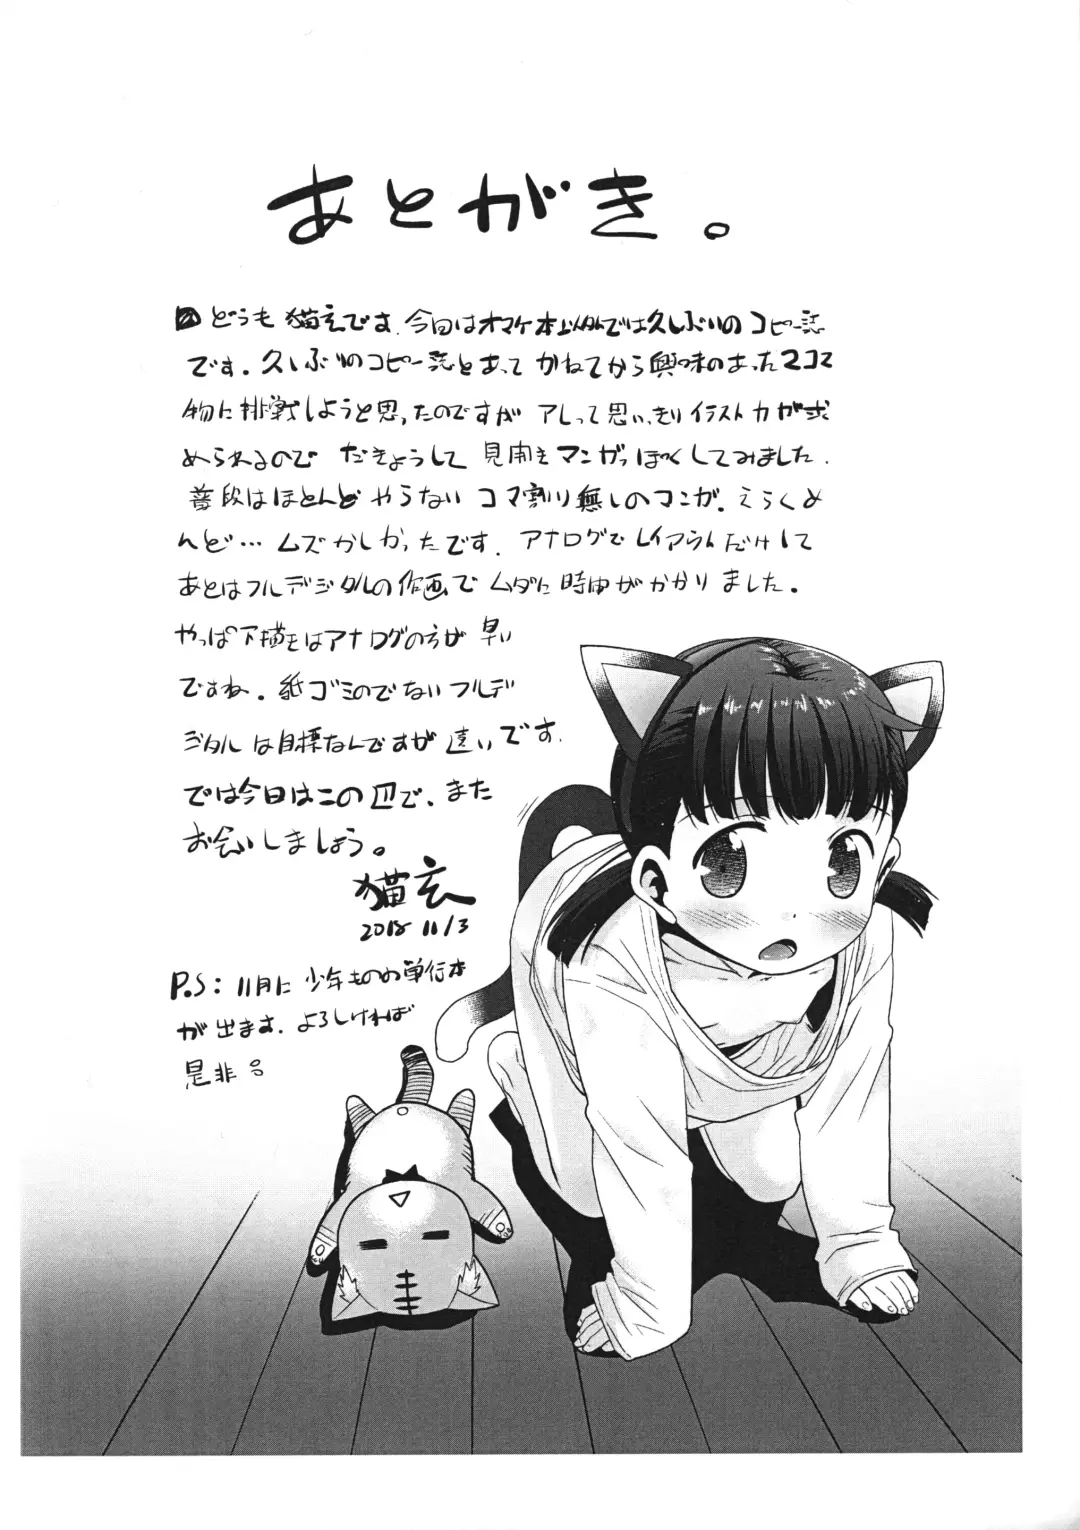 あとがき。
どうも猫玄です。今回はオマケ本以外では久しぶりのコピー誌
です。久しぶりのコピー誌とあってかねてから興味のあった2コマ
物に挑戦しようと思ったのですがアレって思いっきりイラスト力が求
められるのでだきょうして見開きマンガっぽくしてみました。
普段はほとんどやらないコマ割り無しのマンガ。えらくめ
んど…ムズかしかったです。アナログでレイアウトだけして
あとはフルデジタルの作画でムダに時間がかかりました。
やっぱ下描きはアナログの方が早い
ですね。紙ゴミのでないフルデ
ジタルは目標なんですが遠いです。
では今日はこの辺で、また
お会いしましょう。
猫玄
2018 11/3
P.S：11月に少年ものの単行本
が出ます。よろしければ
是非